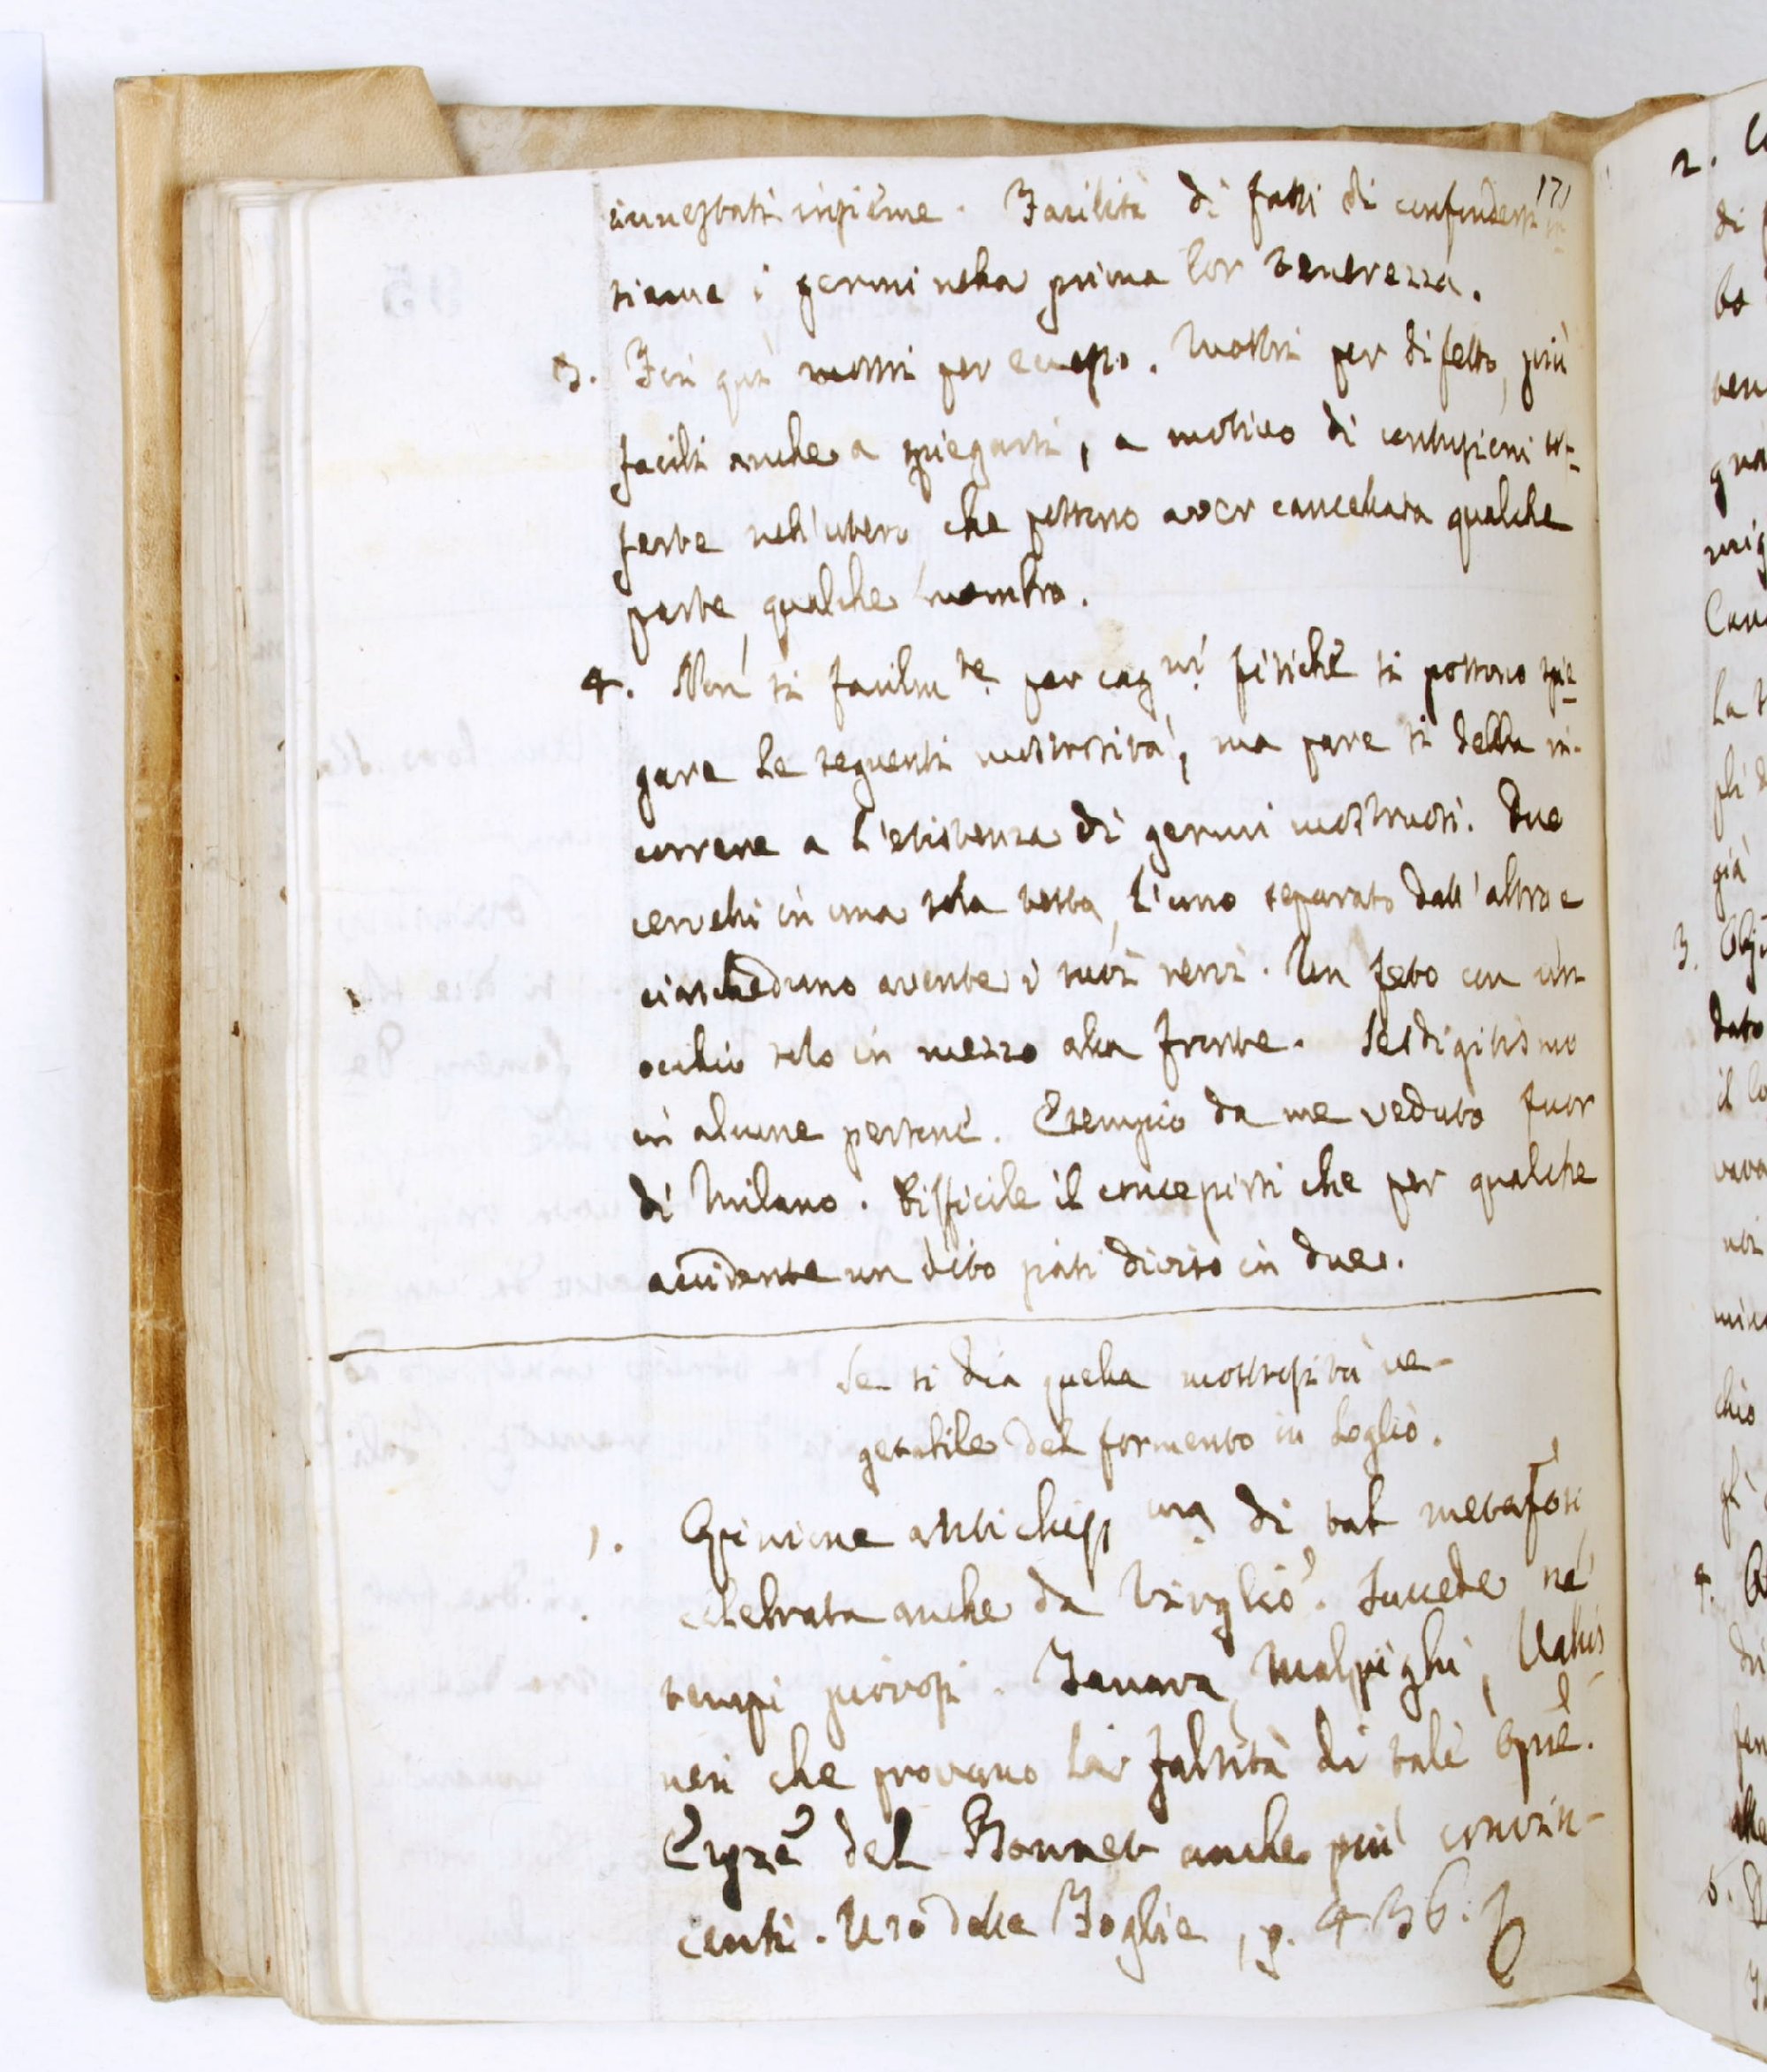 171
innestati insieme. Facilità di fatti di confondersi in-
sieme i germi nella prima lor tenerezza.
3. Fin quì mostri per eccesso. Mostri per difetto, più
facili anche a spiegarsi, a motivo di contusioni sof-
ferte nell'utero che possono aver cancellata qualche
parte, qualche membro.
4. Non sì facilm.te per cag.ni fisiche si possono spie-
gare le seguenti mostrosità, ma pare si debba ri-
correre a l'esistenza di germi mostruosi. Due
cervelli in una sola testa, l'uno separato dall'altro e
ciascheduno avente i suoi nervi. Un feto con un
occhio solo in mezzo alla fronte. Sesdigitismo
in alcune persone. Esempio da me veduto fuor
di Milano. Difficile il concepirsi che per qualche
accidente un dito siasi diviso in due.
Se si dia quella mostrosità ve-
getabile del formento in loglio.
1. Opinione antichiss.ma di tal metafosi
celebrata anche da Virglio. Succede ne'
tempi piovosi. Zanara, Malpighi, Vallis-
neri che provano la falsità di tale Opiē.
Espzē del Bonnet anche più convin-
centi. Uso delle Foglie, p. 436.
2.
3.
4.
5.